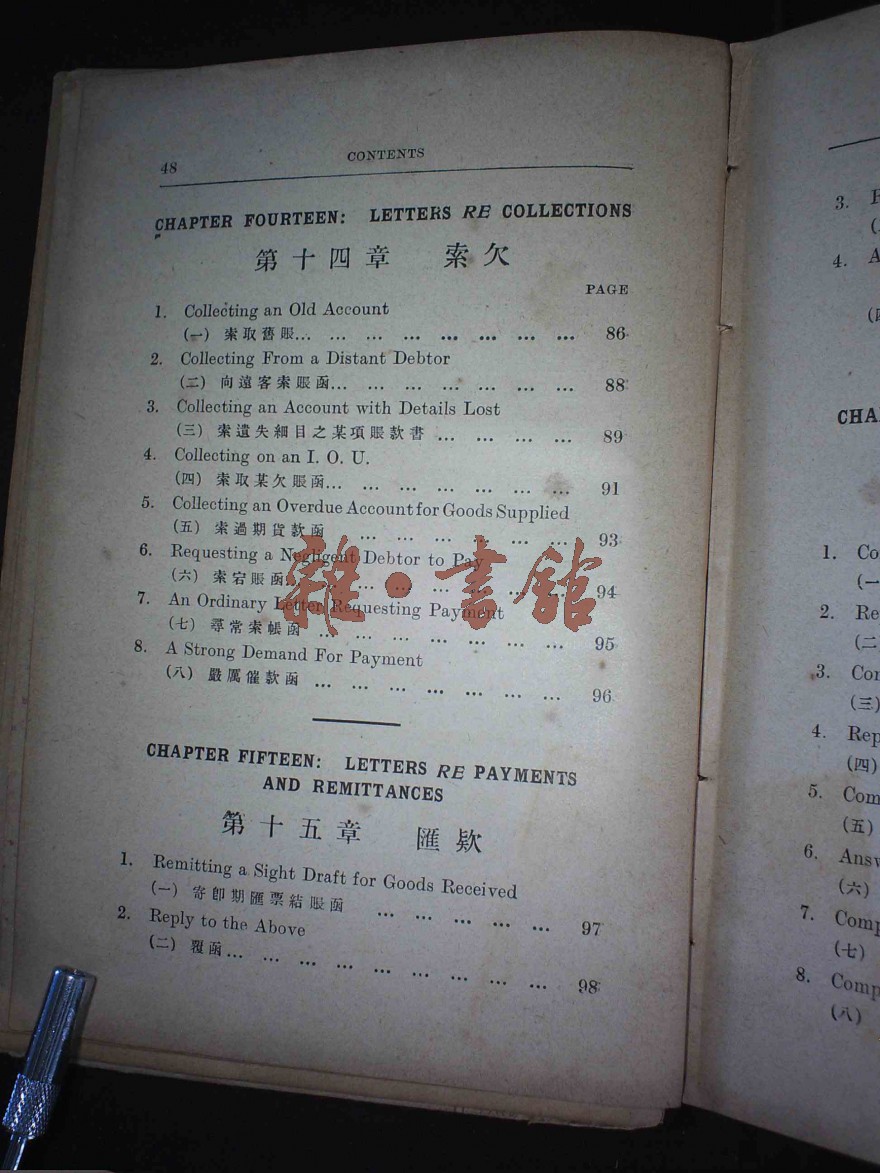 48 CONTENTS
CHAPTER FOURTEEN: LETTERS RE COLLECTIONS
第十四章 索欠
PAGE
1. Collecting an Old Account
(一) 索取舊賬... ... ... ... ... ... ... ... 86
2. Collecting From a Distant Debtor
(二) 向遠客索賬函... ... ... ... ... ... ... 88
3. Collecting an Account with Details Lost
(三) 索遺失細目之某項賬款書 ... ... ... ... 89
4. Collecting on an I. O. U.
(四) 索取某欠賬函... ... ... ... ... ... ... 91
5. Collecting an Overdue Account for Goods Supplied
(五) 索過期貨款函 ... ... ... ... ... ... 93
6. Requesting a Negligent Debtor to Pay
(六) 索宕賬函... ... ... ... ... ... ... ... 94
7. An Ordinary Letter Requesting Payment
(七) 尋常索帳函 ... ... ... ... ... ... ... 95
8. A Strong Demand For Payment
(八) 嚴厲催款函 ... ... ... ... ... ... ... 96
CHAPTER FIFTEEN: LETTERS RE PAYMENTS
AND REMITTANCES
第十五章 匯欵
1. Remitting a Sight Draft for Goods Received
(一) 寄卽期匯票結賬函 ... ... ... ... ... 97
2. Reply to the Above
(二) 覆函... ... ... ... ... ... ... ... ... 98
雜·書館
3.
4. A
CHA
1. Co
(一
2. Re
(二
3. Con
(三)
4. Rep
(四)
5. Com
(五)
6. Answ
(六)
7. Comp
(七)
8. Comp
(八)